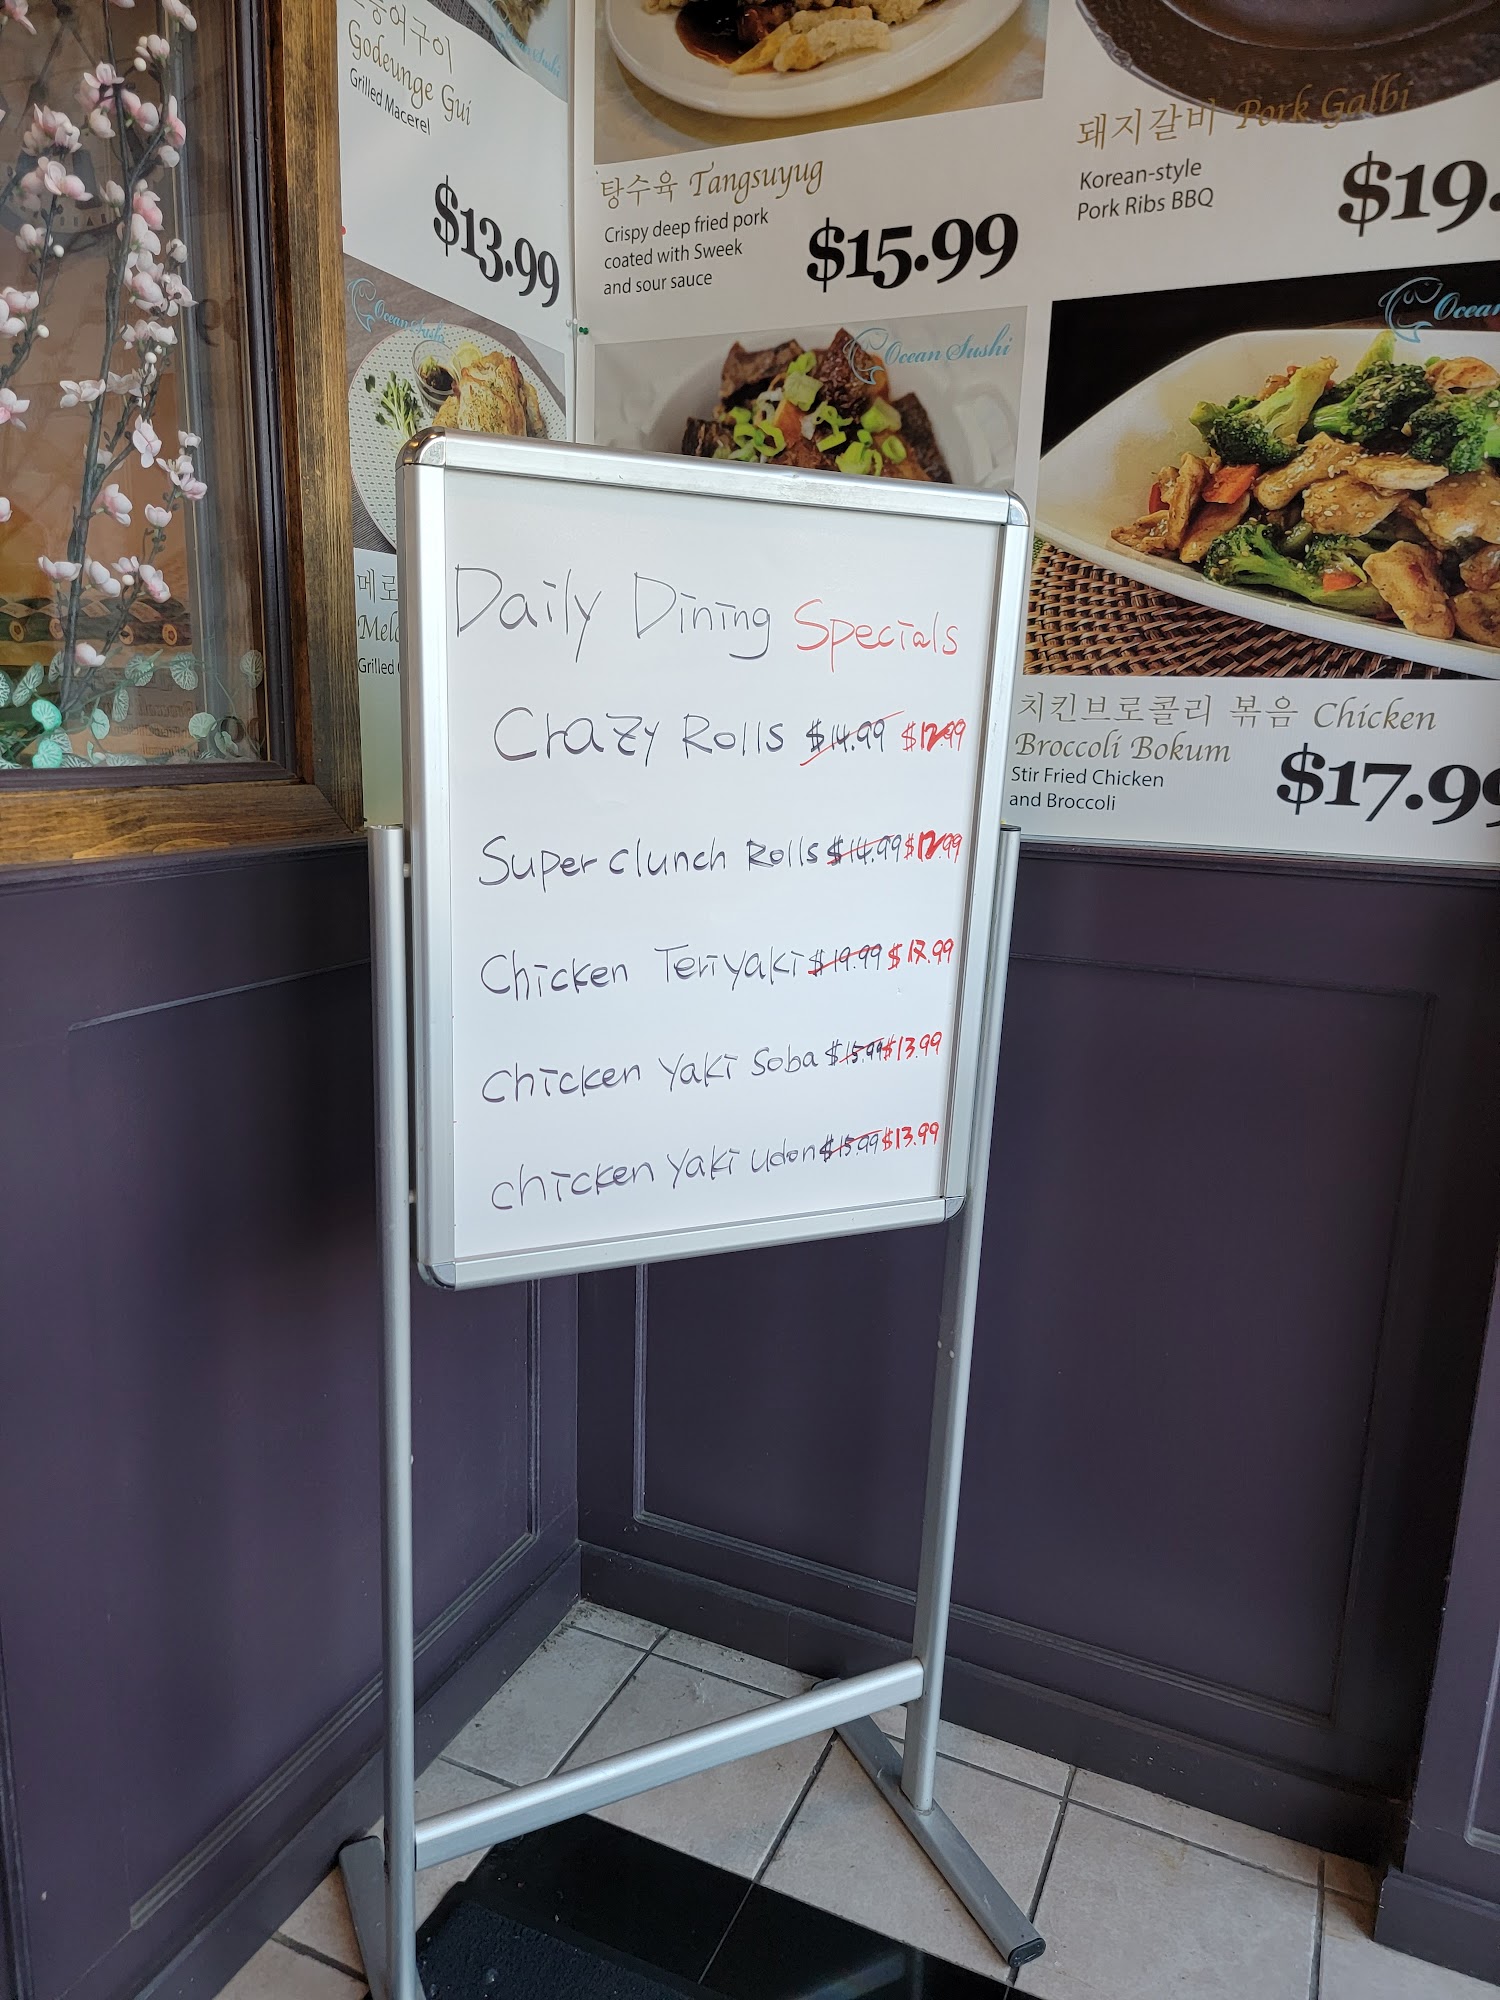 Godeunge Gui
Grilled Macerel
$13.99
Ocean Sushi
탕수육 Tangsuyug
Crispy deep fried pork
coated with Sweek
and sour sauce
$15.99
돼지갈비 Pork Galbi
Korean-style
Pork Ribs BBQ
$19.
Ocean Sushi
Ocean
메로
Grilled
치킨브로콜리 볶음 Chicken
Broccoli Bokum
Stir Fried Chicken
and Broccoli
$17.99
Daily Dining Specials
Crazy Rolls $14.99 $12.99
Super clunch Rolls $14.99 $12.99
Chicken Teriyaki $19.99 $17.99
Chicken Yaki Soba $15.99 $13.99
chicken Yaki udon $15.99 $13.99